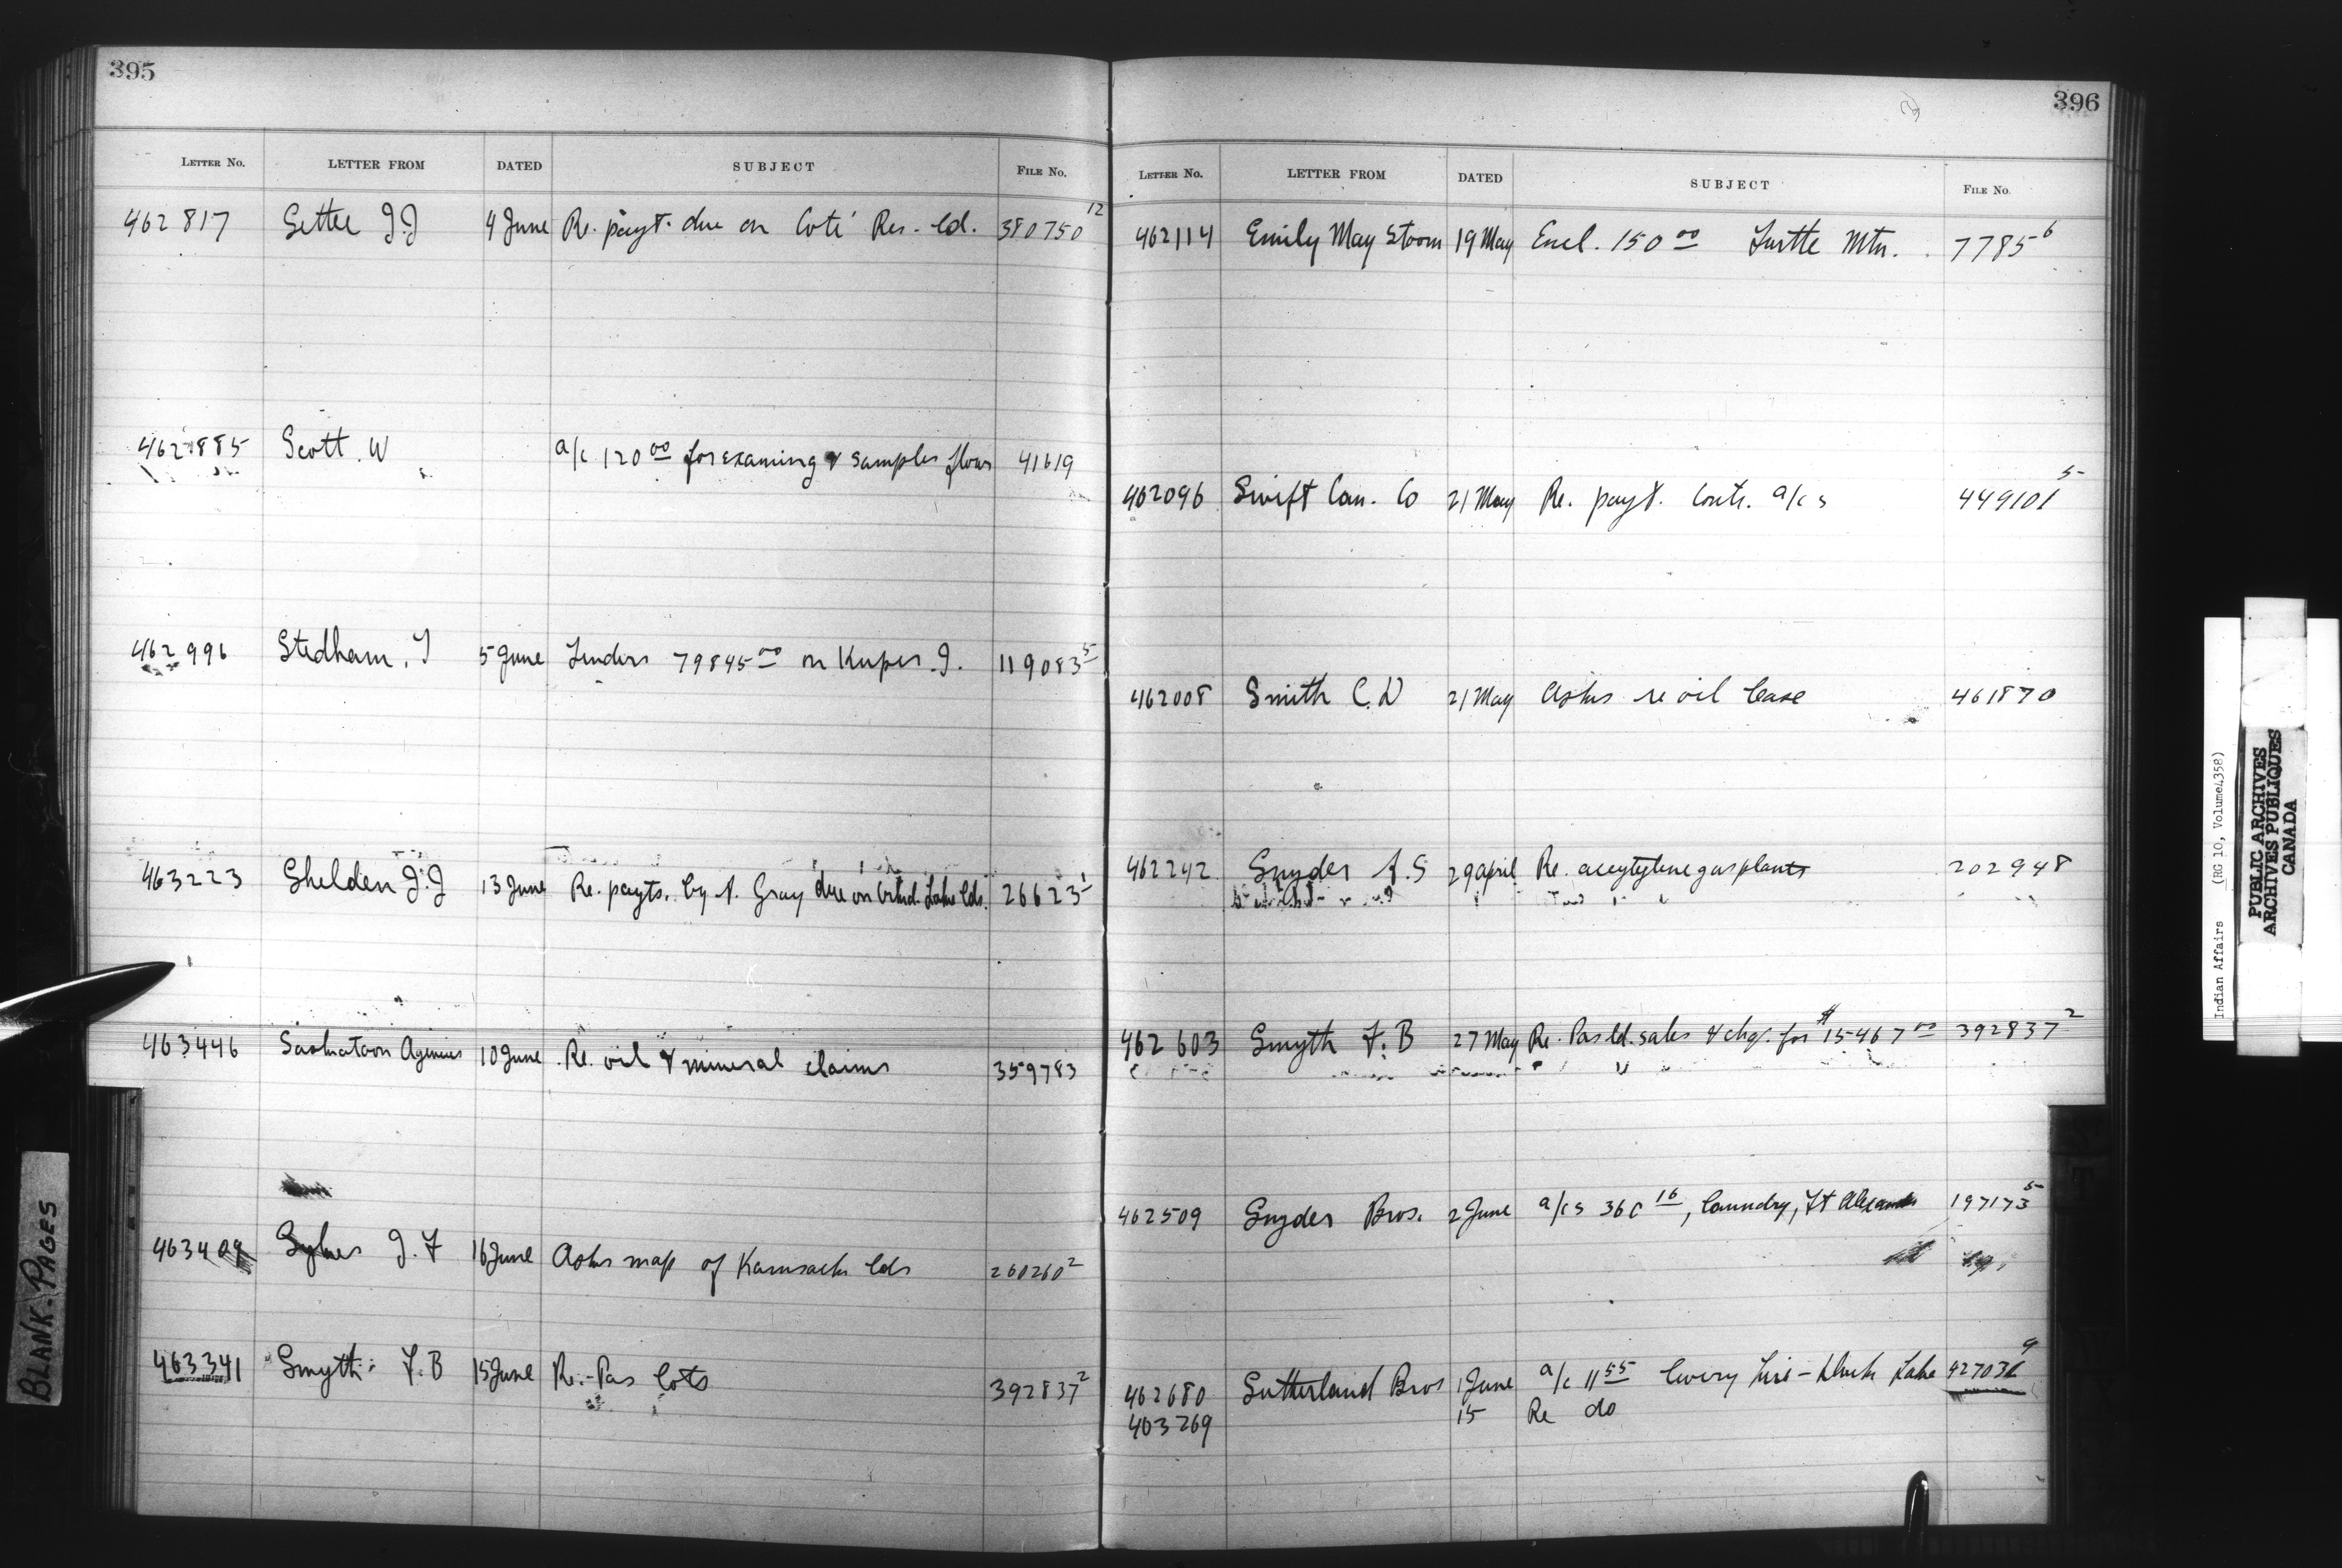 395
LETTER NO. LETTER FROM DATED SUBJECT FILE No.
462817 Settee J.J 4 June Re. payt. due on Coté Res. ld. 380750 12
462885 Scott. W a/c 120 00 for examing & samples flour 41619
462996 Stedham. T 5 June Tenders 79845 00 on Kuper. I. 119083 5
463223 Shelden J.J 13 June Re. payts. by A. Gray due on Lake lds. 26623 1
463446 Saskatoon Agencies 10 June Re. oil & mineral claims 359783
463409 Sykes J. F 16 June Asks map of Kamsack lds 260260 2
463341 Smyth F.B 15 June Re. Pas lots 392837 2
396
LETTER No. LETTER FROM DATED SUBJECT FILE No.
462114 Emily May Storm 19 May Encl. 150 00 Turtle Mtn. 7785 6
462096 Swift Can. Co 21 May Re. payt. Contr. a/cs 449101 5
462008 Smith C.D 21 May Asks re oil lease 461870
462242 Snyder A.S 29 april Re. aceytylene gas plants 202948
462603 Smyth F.B 27 May Re. Pas ld. sales & chq. for $15467 00 392837 2
462509 Snyder Bros. 2 June a/cs 360 16, laundry, Ft Alexander 197173 5
462680 Sutherland Bros 1 June a/c 11 55 livery hire - Duck Lake 427031 9
463269 15 Re do
BLANK. PAGES
Indian Affairs (RG 10, Volume4358)
PUBLIC ARCHIVES
ARCHIVES PUBLIQUES
CANADA